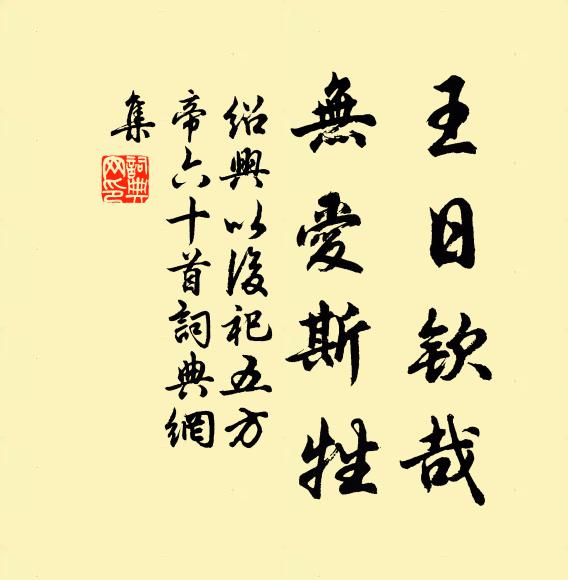 王日欽哉
無愛斯牲
紹興以後祀五方
帝六十首詞典網
集
詞典
网印